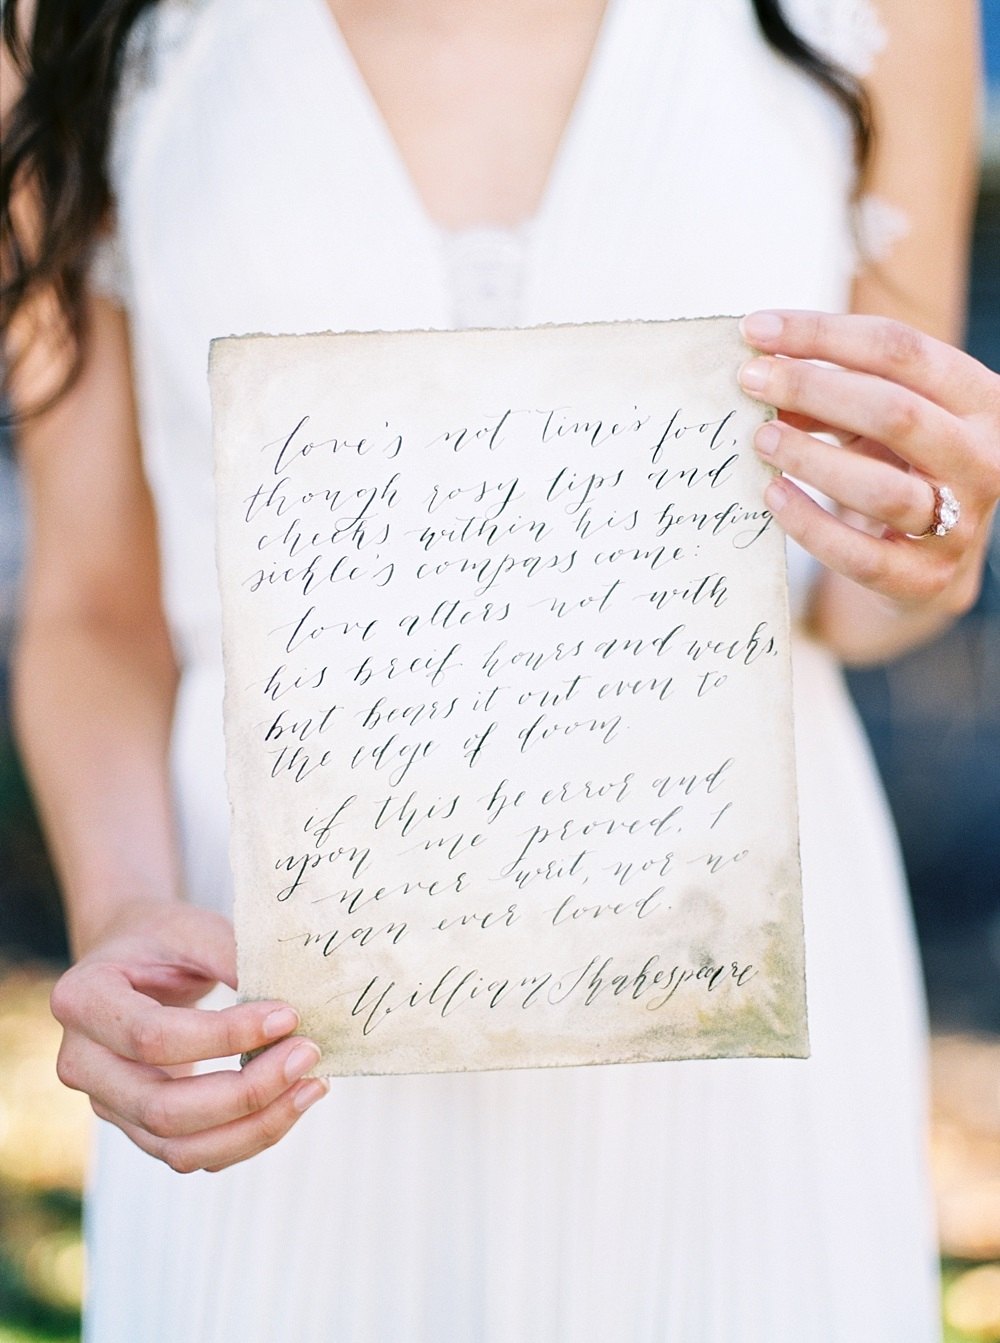 love's not Time's fool,
though rosy lips and
cheeks within his bending
sickle's compass come:
love alters not with
his breif hours and weeks,
but bears it out even to
the edge of doom.
if this be error and
upon me proved, I
never writ, nor no
man ever loved.
William Shakespeare